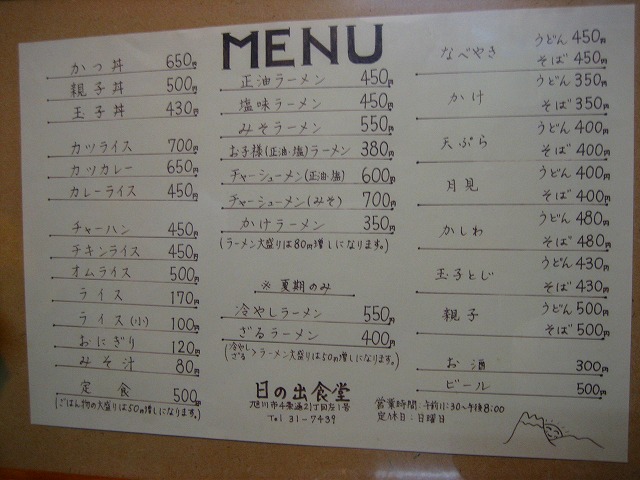 MENU
かつ丼 650円
親子丼 500円
玉子丼 430円
カツライス 700円
カツカレー 650円
カレーライス 450円
チャーハン 450円
チキンライス 450円
オムライス 500円
ライス 170円
ライス(小) 100円
おにぎり 120円
みそ汁 80円
定食 500円
(ごはん物の大盛りは50円増しになります。)
正油ラーメン 450円
塩味ラーメン 450円
みそラーメン 550円
お子様(正油・塩)ラーメン 380円
チャーシューメン(正油・塩) 600円
チャーシューメン(みそ) 700円
かけラーメン 350円
(ラーメン大盛りは80円増しになります。)
※夏期のみ
冷やしラーメン 550円
ざるラーメン 400円
(冷やし ざる>ラーメン大盛りは50円増しになります。)
日の出食堂
旭川市4条通21丁目左1号
Tel 31-7439
なべやき うどん 450円
そば 450円
かけ うどん 350円
そば 350円
天ぷら うどん 400円
そば 400円
月見 うどん 400円
そば 400円
かしわ うどん 480円
そば 480円
玉子とじ うどん 430円
そば 430円
親子 うどん 500円
そば 500円
お酒 300円
ビール 500円
営業時間:午前11:30~午後8:00
定休日:日曜日